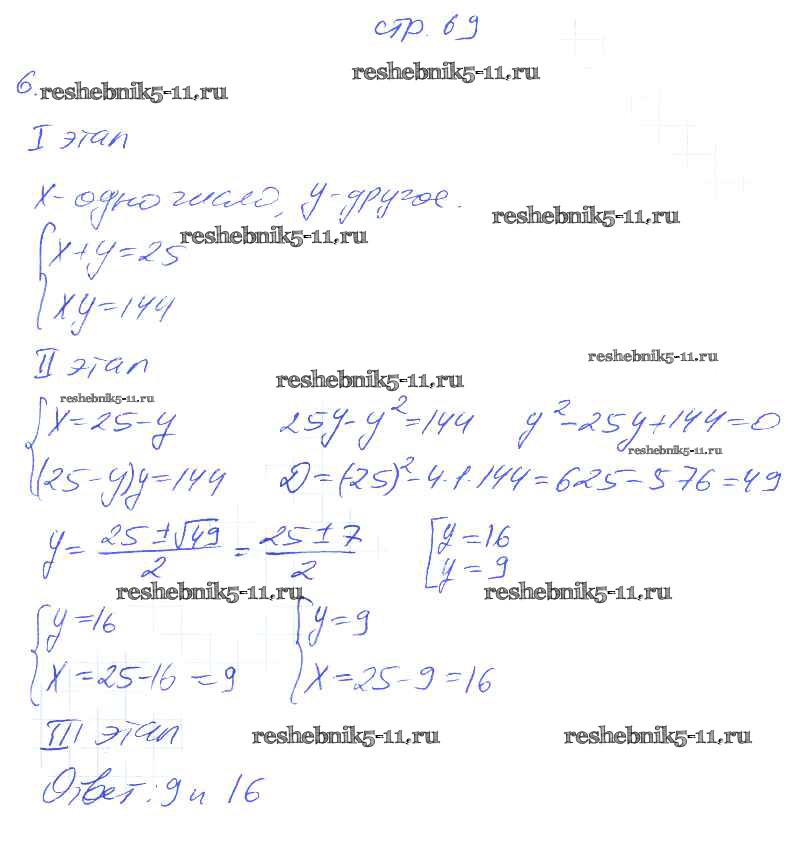 стр. 69
reshebnik5-11.ru
6. reshebnik5-11.ru
I этап
x-одно число, y-другое.
reshebnik5-11.ru
reshebnik5-11.ru
{ x+y=25
xy=144
II этап
reshebnik5-11.ru
reshebnik5-11.ru
reshebnik5-11.ru
{ x=25-y 25y-y²=144 y²-25y+144=0
reshebnik5-11.ru
(25-y)y=144 D=(-25)²-4·1·144=625-576=49
y= (25±√49)/2 = (25±7)/2 [ y=16
y=9
reshebnik5-11.ru reshebnik5-11.ru
{ y=16 { y=9
x=25-16=9 x=25-9=16
III этап reshebnik5-11.ru reshebnik5-11.ru
Ответ: 9 и 16